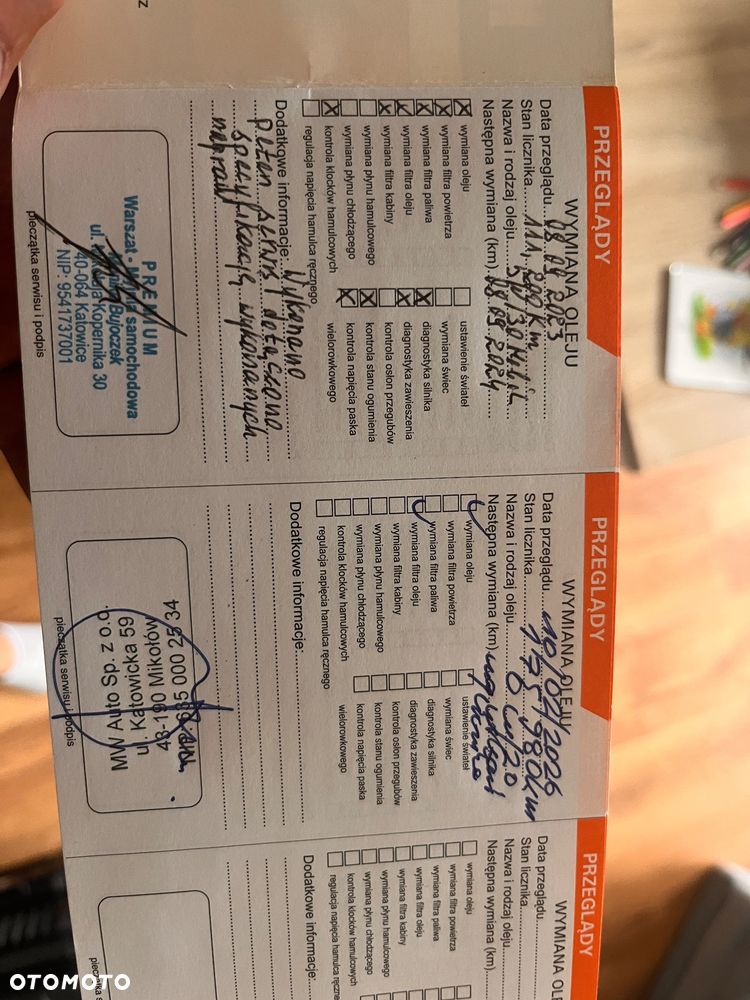 PRZEGLĄDY
WYMIANA OLEJU
Data przeglądu 08 09 2023
Stan licznika 111,200 km
Nazwa i rodzaj oleju 5W/30 Mobil
Następna wymiana (km) 08.09.2024
wymiana oleju
wymiana filtra powietrza
wymiana filtra paliwa
wymiana filtra oleju
wymiana filtra kabiny
wymiana płynu hamulcowego
wymiana płynu chłodzącego
kontrola klocków hamulcowych
regulacja napięcia hamulca ręcznego
ustawienie świateł
wymiana świec
diagnostyka silnika
diagnostyka zawieszenia
kontrola osłon przegubów
kontrola stanu ogumienia
kontrola napięcia paska
wielorowkowego
Dodatkowe informacje: Wykonano
pełen serwis dołączona
specyfikacja wykonanych
napraw
PREMIUM
Warszat - Myjnia samochodowa
Bujoczek
ul. Mikołaja Kopernika 30
40-064 Katowice
NIP: 9541737001
pieczątka serwisu i podpis
PRZEGLĄDY
WYMIANA OLEJU
Data przeglądu 10/02/2026
Stan licznika 175980km
Nazwa i rodzaj oleju 0W/20
Następna wymiana (km)
wymiana oleju
wymiana filtra powietrza
wymiana filtra paliwa
wymiana filtra oleju
wymiana filtra kabiny
wymiana płynu hamulcowego
wymiana płynu chłodzącego
kontrola klocków hamulcowych
regulacja napięcia hamulca ręcznego
ustawienie świateł
wymiana świec
diagnostyka silnika
diagnostyka zawieszenia
kontrola osłon przegubów
kontrola stanu ogumienia
kontrola napięcia paska
wielorowkowego
Dodatkowe informacje:
MW Auto Sp. z o.o.
ul. Katowicka 59
43-190 Mikołów
685 000 25 34
pieczątka serwisu i podpis
PRZEGLĄDY
WYMIANA OLE
Data przeglądu
Stan licznika
Nazwa i rodzaj oleju
Następna wymiana (km)
wymiana oleju
wymiana filtra powietrza
wymiana filtra paliwa
wymiana filtra oleju
wymiana filtra kabiny
wymiana płynu hamulcowego
wymiana płynu chłodzącego
kontrola klocków hamulcowych
regulacja napięcia hamulca ręczne
Dodatkowe informacje:
pieczątka s
OTOMOTO